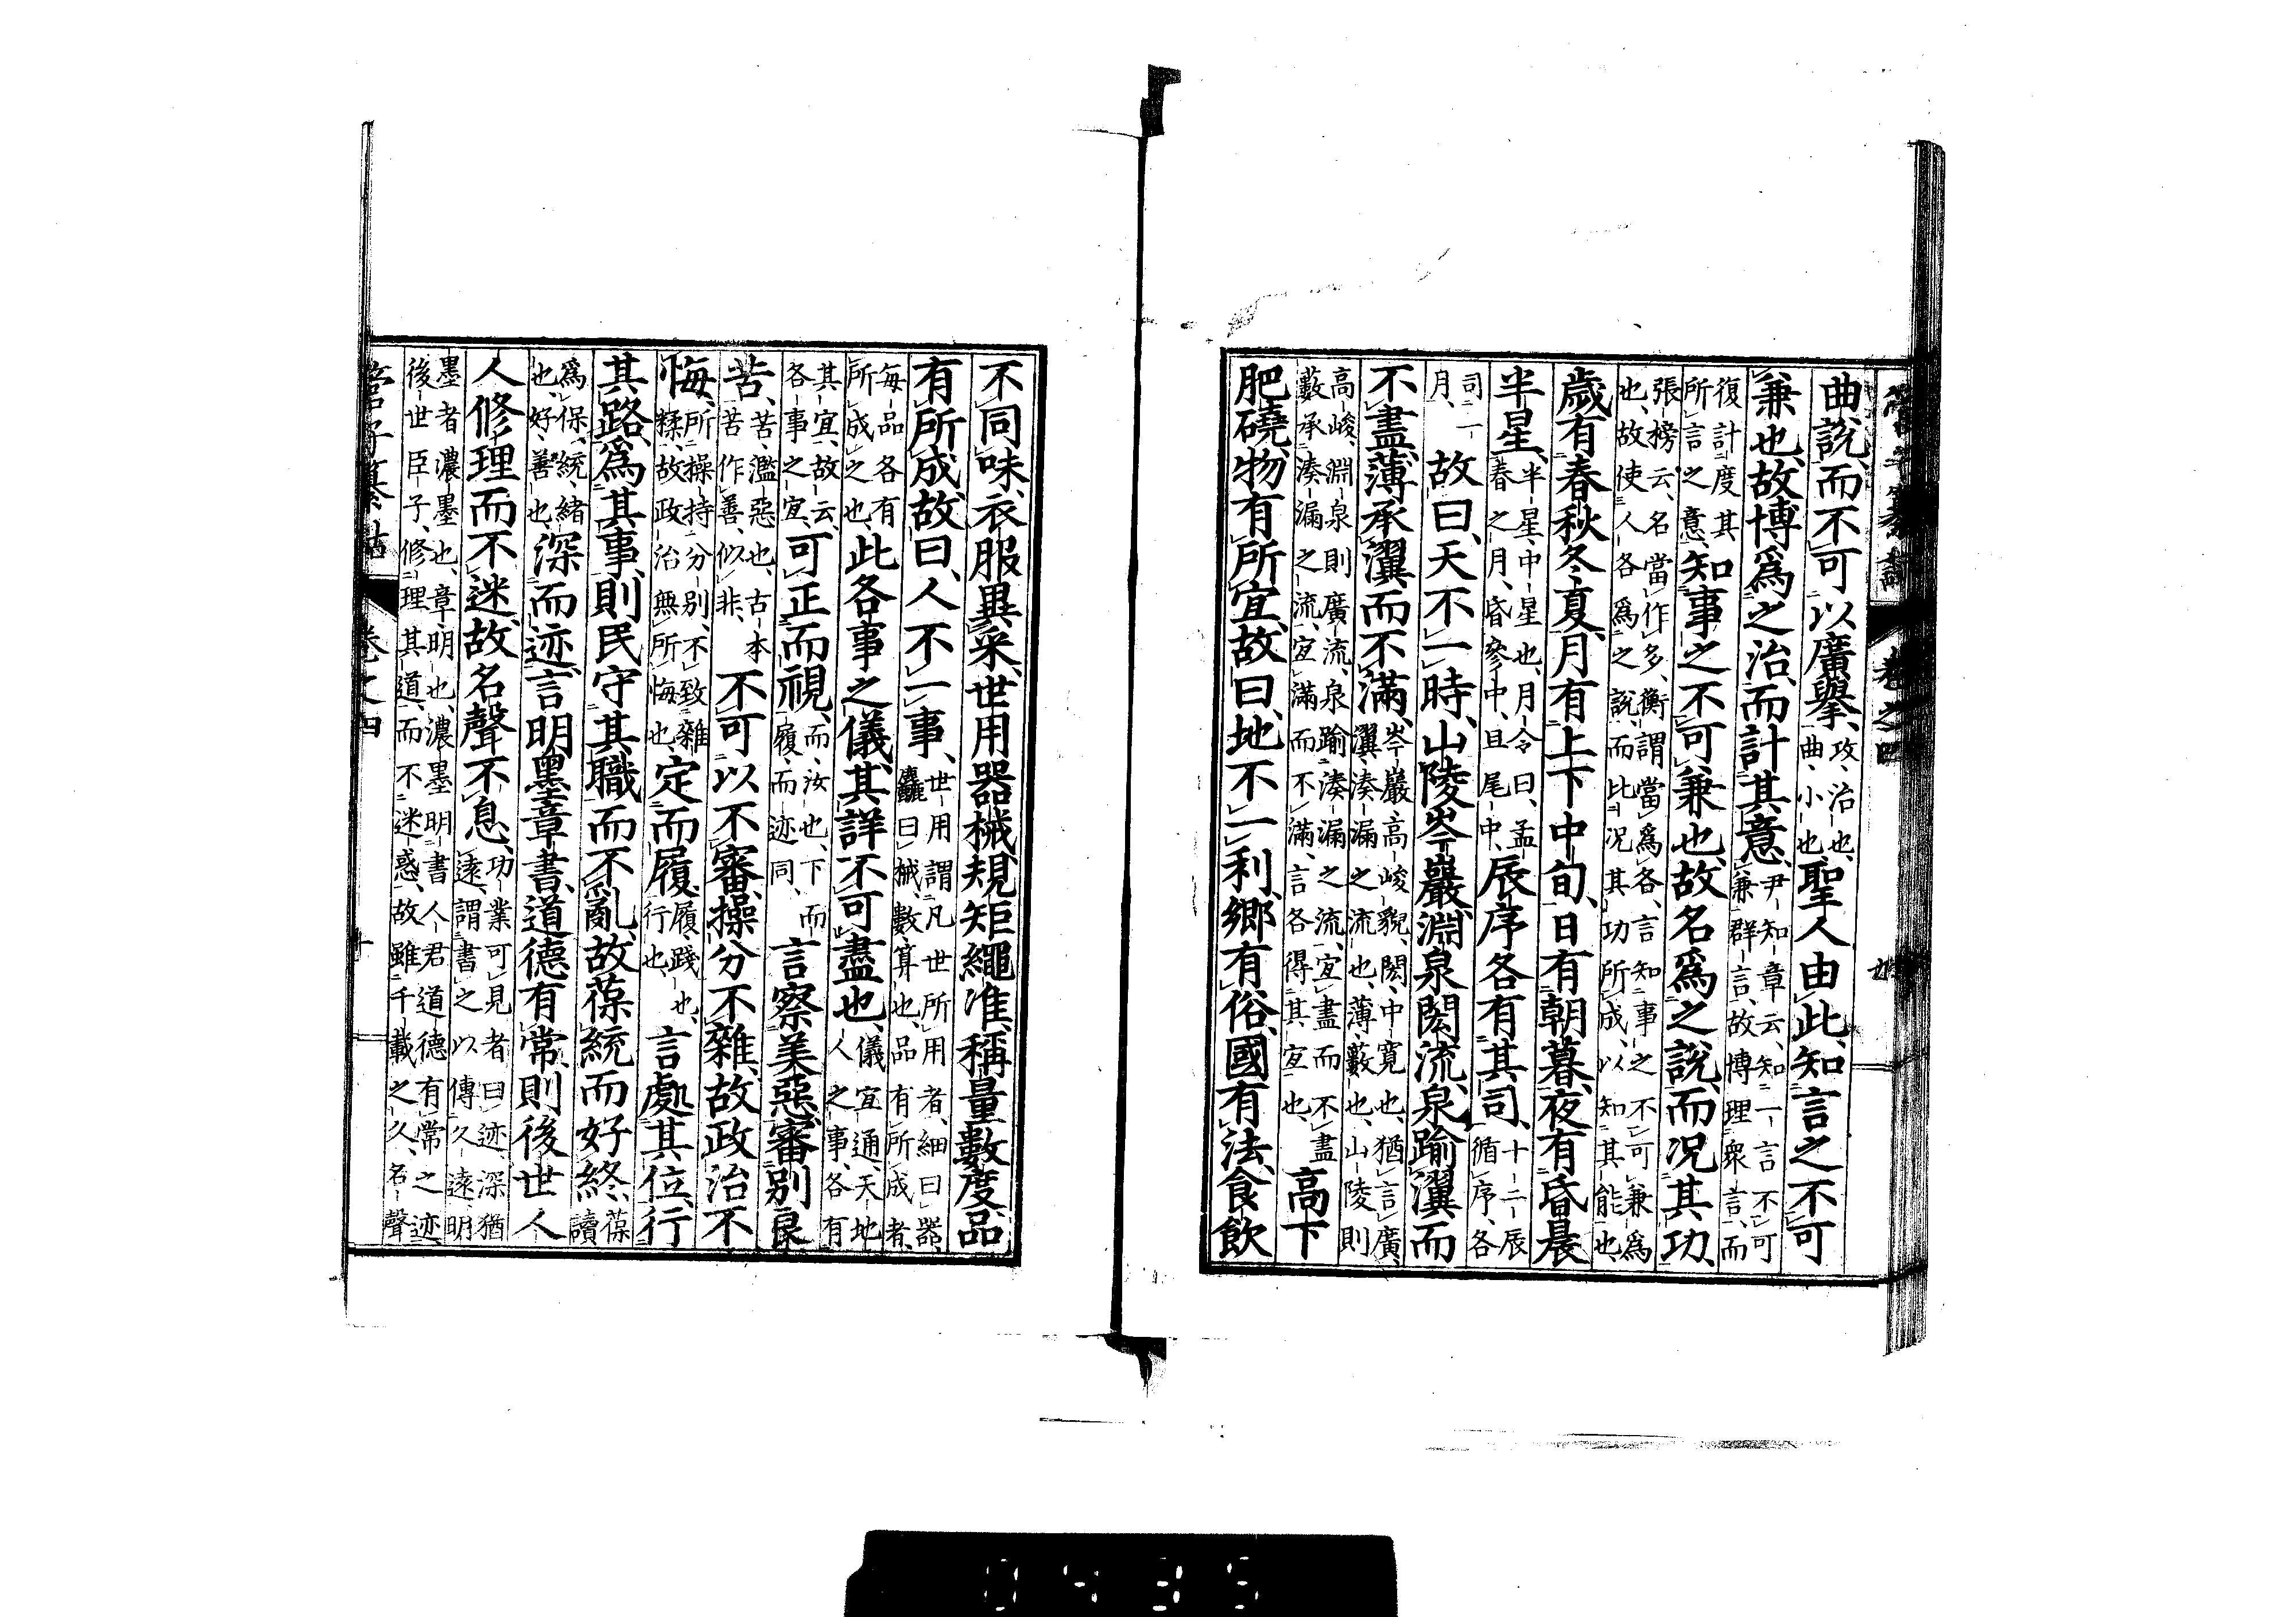 曲說、而不可以廣擧、攻、治也、曲、小也、聖人由此、知言之不可
兼也、故博爲之治、而計其意、尹知章云、知一言不可兼群言、故博理衆言、而
復計度其所言之意、知事之不可兼也、故名爲之說、而况其功、
張榜云、名當作多、衡謂當爲各、言知事之不可兼爲也、故使人各爲之說、而比况其功所成、以知其能也、
歲有春秋冬夏、月有上下中旬、日有朝暮、夜有昏晨
半星、半星、中星也、月令曰、孟春之月、昏參中、旦尾中、辰序各有其司、十二辰循序、各
司一月、故曰、天不一時、山陵岑巖、淵泉閎流、泉踰瀷而
不盡、薄承瀷而不滿、岑巖、高峻貌、閎、中寬也、猶言廣、瀷、湊漏之流也、薄、藪也、山陵則
高峻、淵泉則廣流、泉踰湊漏之流、宜盡而不盡藪承湊漏之流、宜滿而不滿、言各得其宜也、高下
肥磽、物有所宜、故曰、地不一利、鄉有俗、國有法、食飮
不同味、衣服異采、世用器械、規矩繩准、稱量數度、品
有所成、故曰、人不一事、世用謂凡世所用者、細曰器、麤曰械、數算也、品有所成者、
每品各有所成之也、此各事之儀、其詳不可盡也、儀宜通、天地人之事、各有
其宜、故云、各事之宜、可正而視、而、汝也、下而履、而迹同、言察美惡、審別良
苦、苦、濫惡也、古本苦作善、似非、不可以不審、操分不雜、故政治不
悔、所操持分別、不致雜糅、故政治無所悔也、定而履、履踐也、行也、言處其位、行
其路、爲其事、則民守其職而不亂、故葆統而好終、葆讀
爲保、統、緒也、好、善也、深而迹、言明墨章書、道德有常、則後世人
人修理而不迷、故名聲不息、功業可見者曰迹、深猶遠、謂書之以傳久遠、明
墨者濃墨也、章明也、濃墨明書人君道德有常之迹、後世臣子、修理其道、而不迷惑、故雖千載之久、名聲
管子纂詁　卷之四